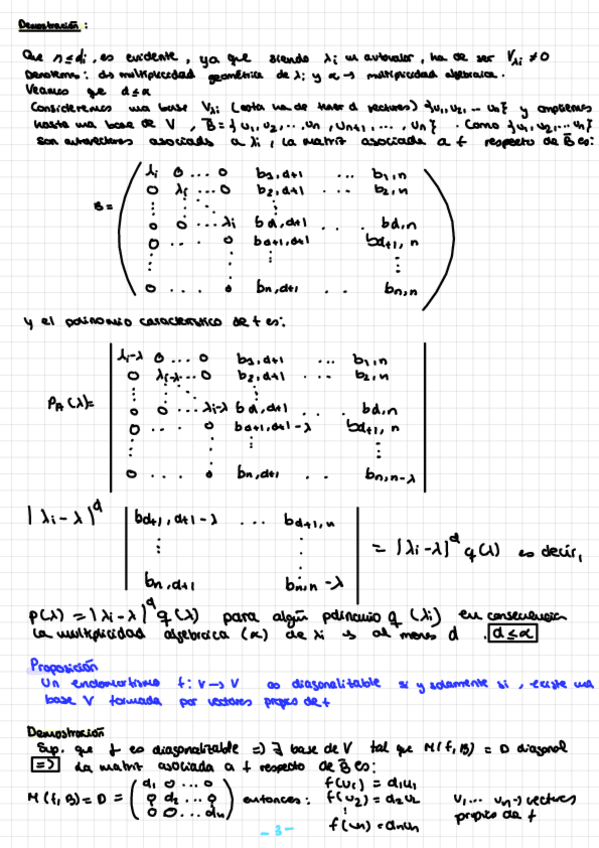 Demostración:
Que n ≤ di, es evidente, ya que siendo λi un autovalor, ha de ser Vλi ≠ 0
Denotemos: d → multiplicidad geométrica de λi y α → multiplicidad algebraica.
Veamos que d ≤ α
Consideremos una base Vλi (esta ha de tener d vectores) {u1, u2, ... un} y ampliemos
hasta una base de V, B̄ = {u1, u2, ..., un, un+1, ..., un}. Como {u1, u2, ... un}
son autovectores asociados a λi, la matriz asociada a f respecto de B̄ es:
λi 0 ... 0 b1,d+1 ... b1,n
0 λi ... 0 b2,d+1 ... b2,n
B =
0 0 ... λi bd,d+1 ... bd,n
0 ... 0 bd+1,d+1 bd+1,n
0 ... 0 bn,d+1 .. bn,n
y el polinomio característico de f es:
λi-λ 0 ... 0 b1,d+1 ... b1,n
0 λi-λ ... 0 b2,d+1 ... b2,n
PA(λ)=
0 0 ... λi-λ bd,d+1 ... bd,n
0 ... 0 bd+1,d+1-λ bd+1,n
0 ... 0 bn,d+1 .. bn,n-λ
|λi-λ|^d | bd+1,d+1-λ ... bd+1,n |
= |λi-λ|^d q(λ) es decir,
bn,d+1 bn,n-λ
p(λ) = |λi-λ|^d q(λ) para algún polinomio q(λi) en consecuencia
la multiplicidad algebraica (α) de λi es al menos d. d ≤ α
Proposición
Un endomorfismo f: V → V es diagonalizable si y solamente si, existe una
base V formada por vectores propios de f
Demostración
Sup. que f es diagonalizable => ∃ base de V tal que M(f,B) = D diagonal
=> La matriz asociada a f respecto de B̄ es:
d1 0 ... 0 f(u1) = d1u1
M(f,B) = D = 0 d2 ... 0 entonces: f(u2) = d2u2 v1... vn → vectores
0 0 ... dn f(un) = dnun propios de f
- 3 -